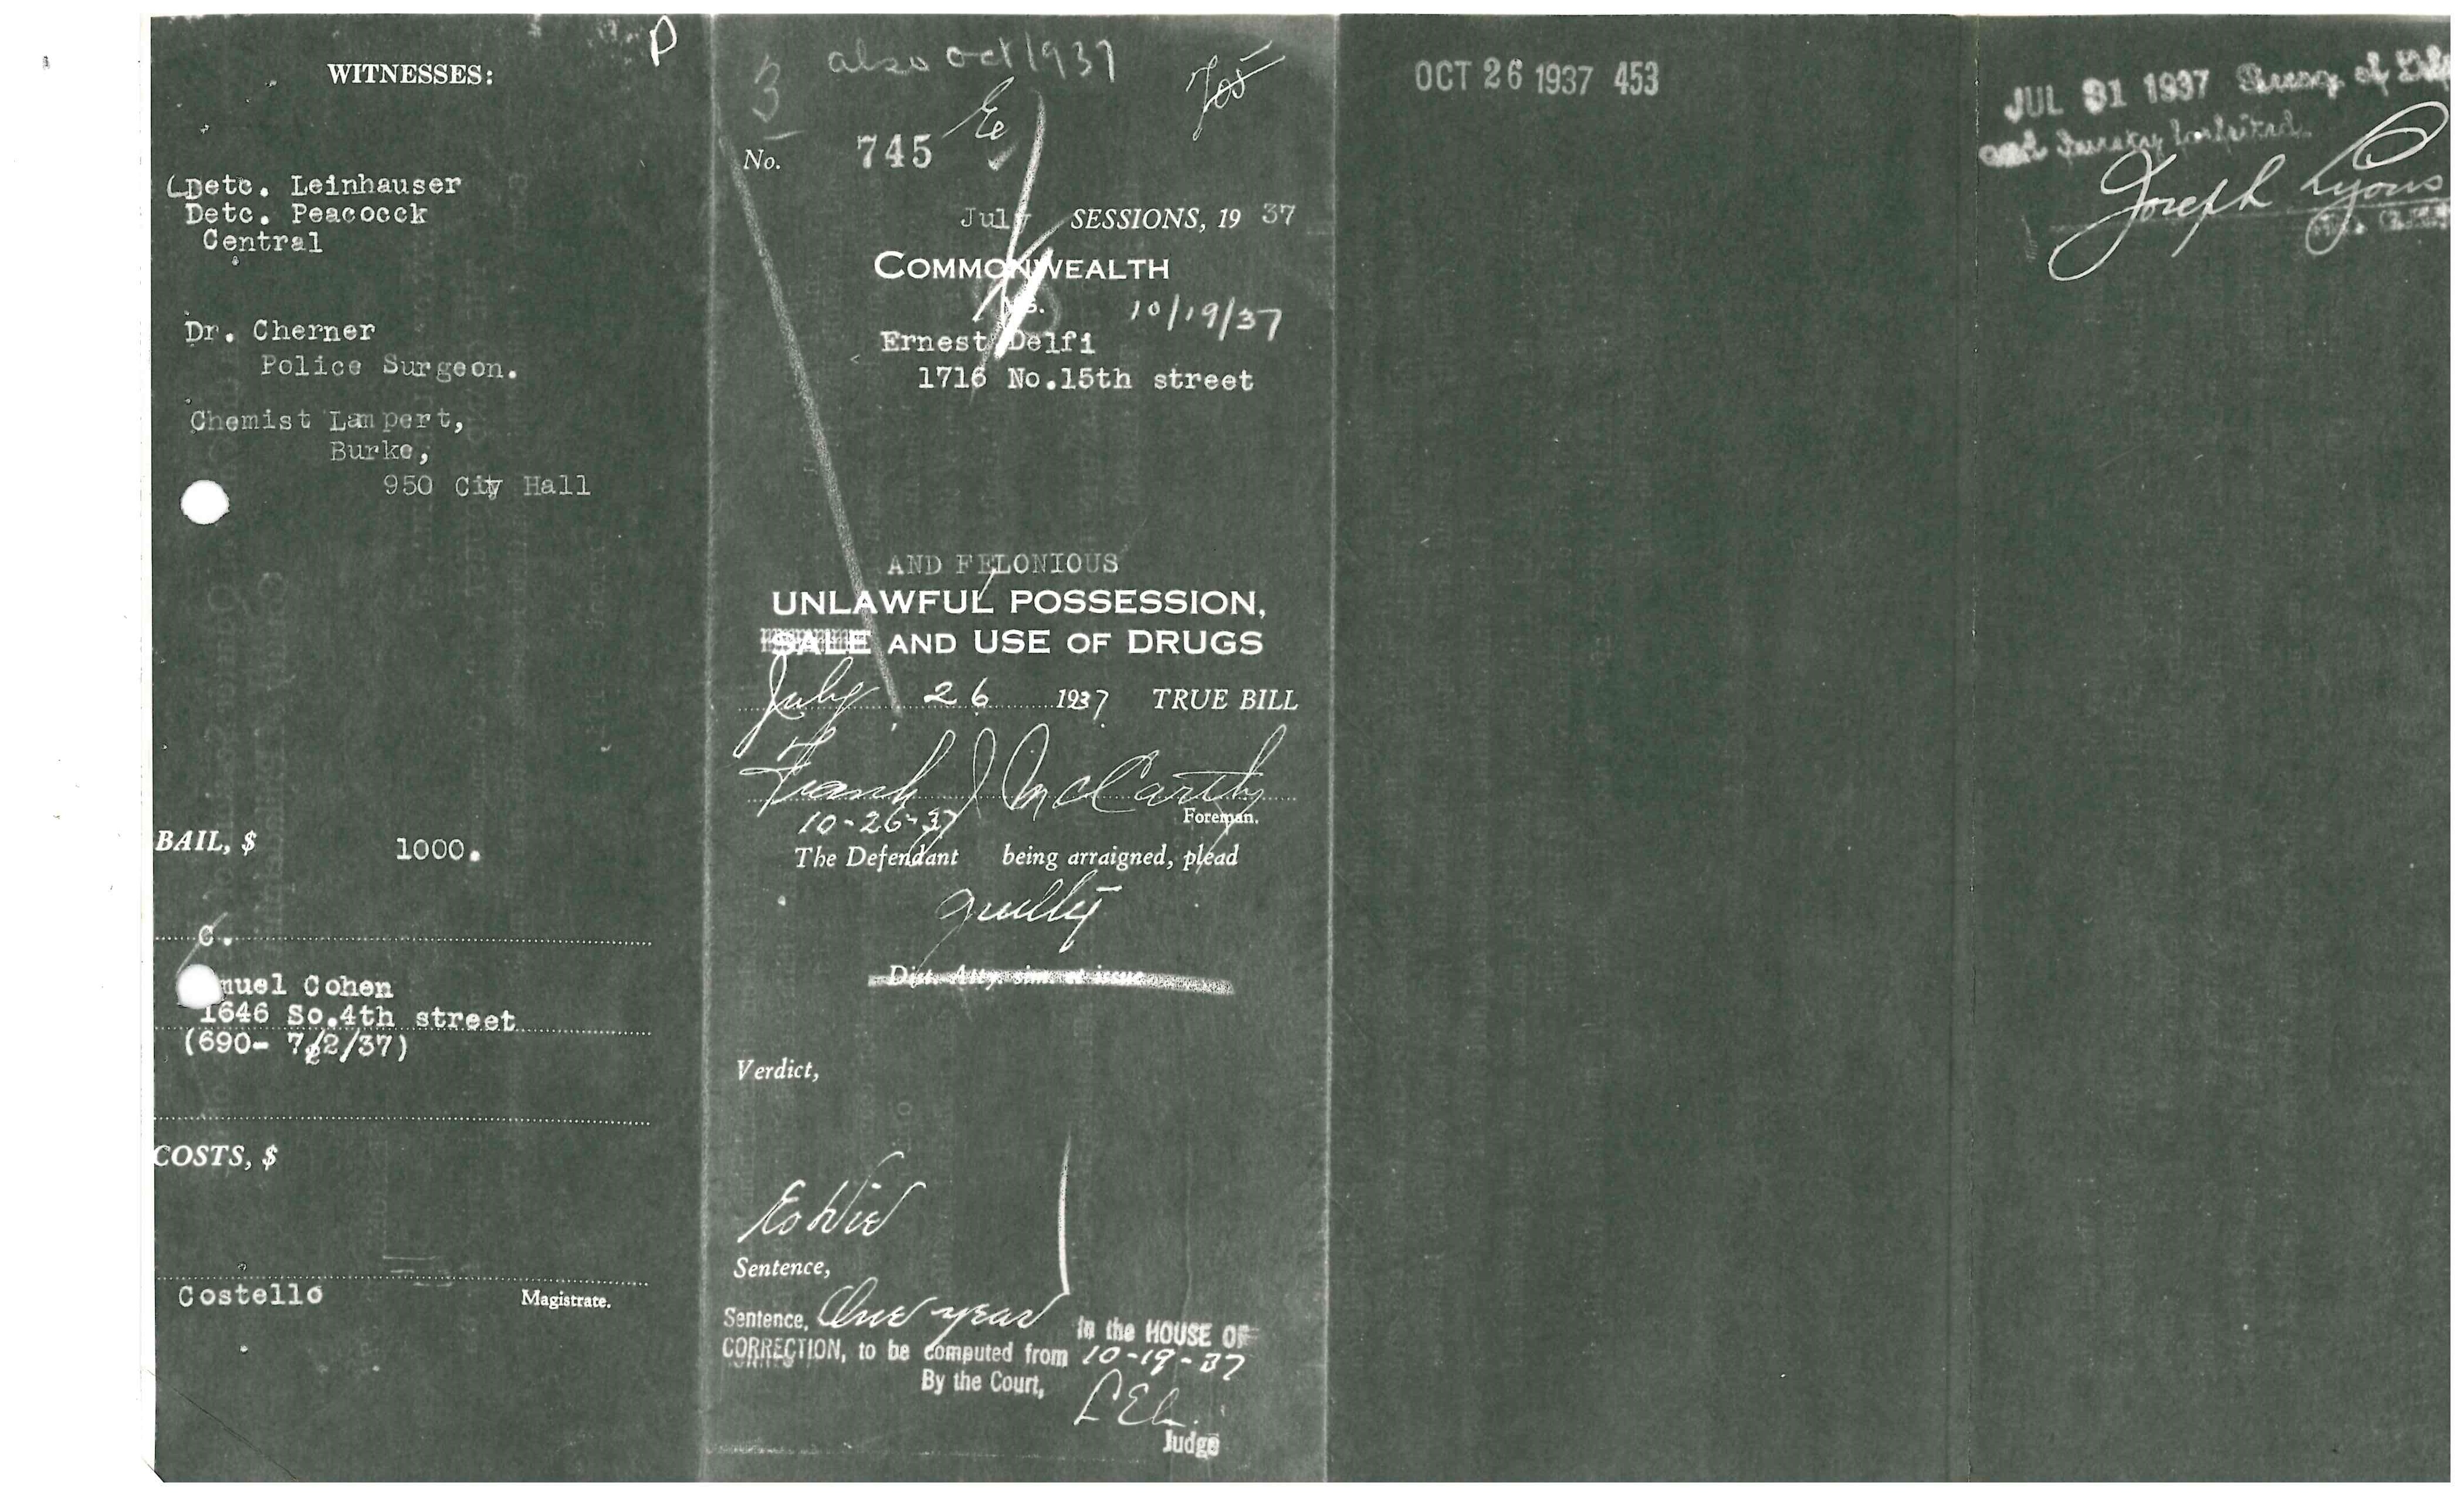 WITNESSES:
Detc. Leinhauser
Detc. Peacocck
Central
Dr. Cherner
Police Surgeon.
Chemist Lampert,
Burke,
950 City Hall
BAIL, $ 1000.
C.
muel Cohen
1646 So.4th street
(690- 7/2/37)
COSTS, $
Costello Magistrate.
3 also oct 1937
No. 745
July SESSIONS, 19 37
COMMONWEALTH
vs. 10/19/37
Ernest Delfi
1716 No.15th street
AND FELONIOUS
UNLAWFUL POSSESSION,
SALE AND USE OF DRUGS
July 26 1937 TRUE BILL
Frank J McCarthy
Foreman.
10-26-37
The Defendant being arraigned, plead
guilty
Dist. Atty. sim. et issue
Verdict,
Sentence,
Sentence, One year in the HOUSE OF
CORRECTION, to be computed from 10-19-37
By the Court,
Judge
OCT 26 1937 453
JUL 31 1937
and Surety forfeited.
Joseph Lyons